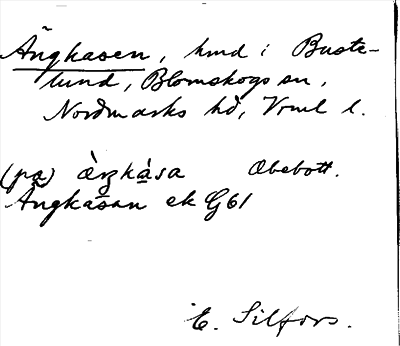 Ängkasen, hmd i Buste-
lund, Blomskogs sn,
Nordmarks hd, Vrml l.
(pa) àŋkàsa Obebott.
Ängkasan ek G61
E. Silfors.